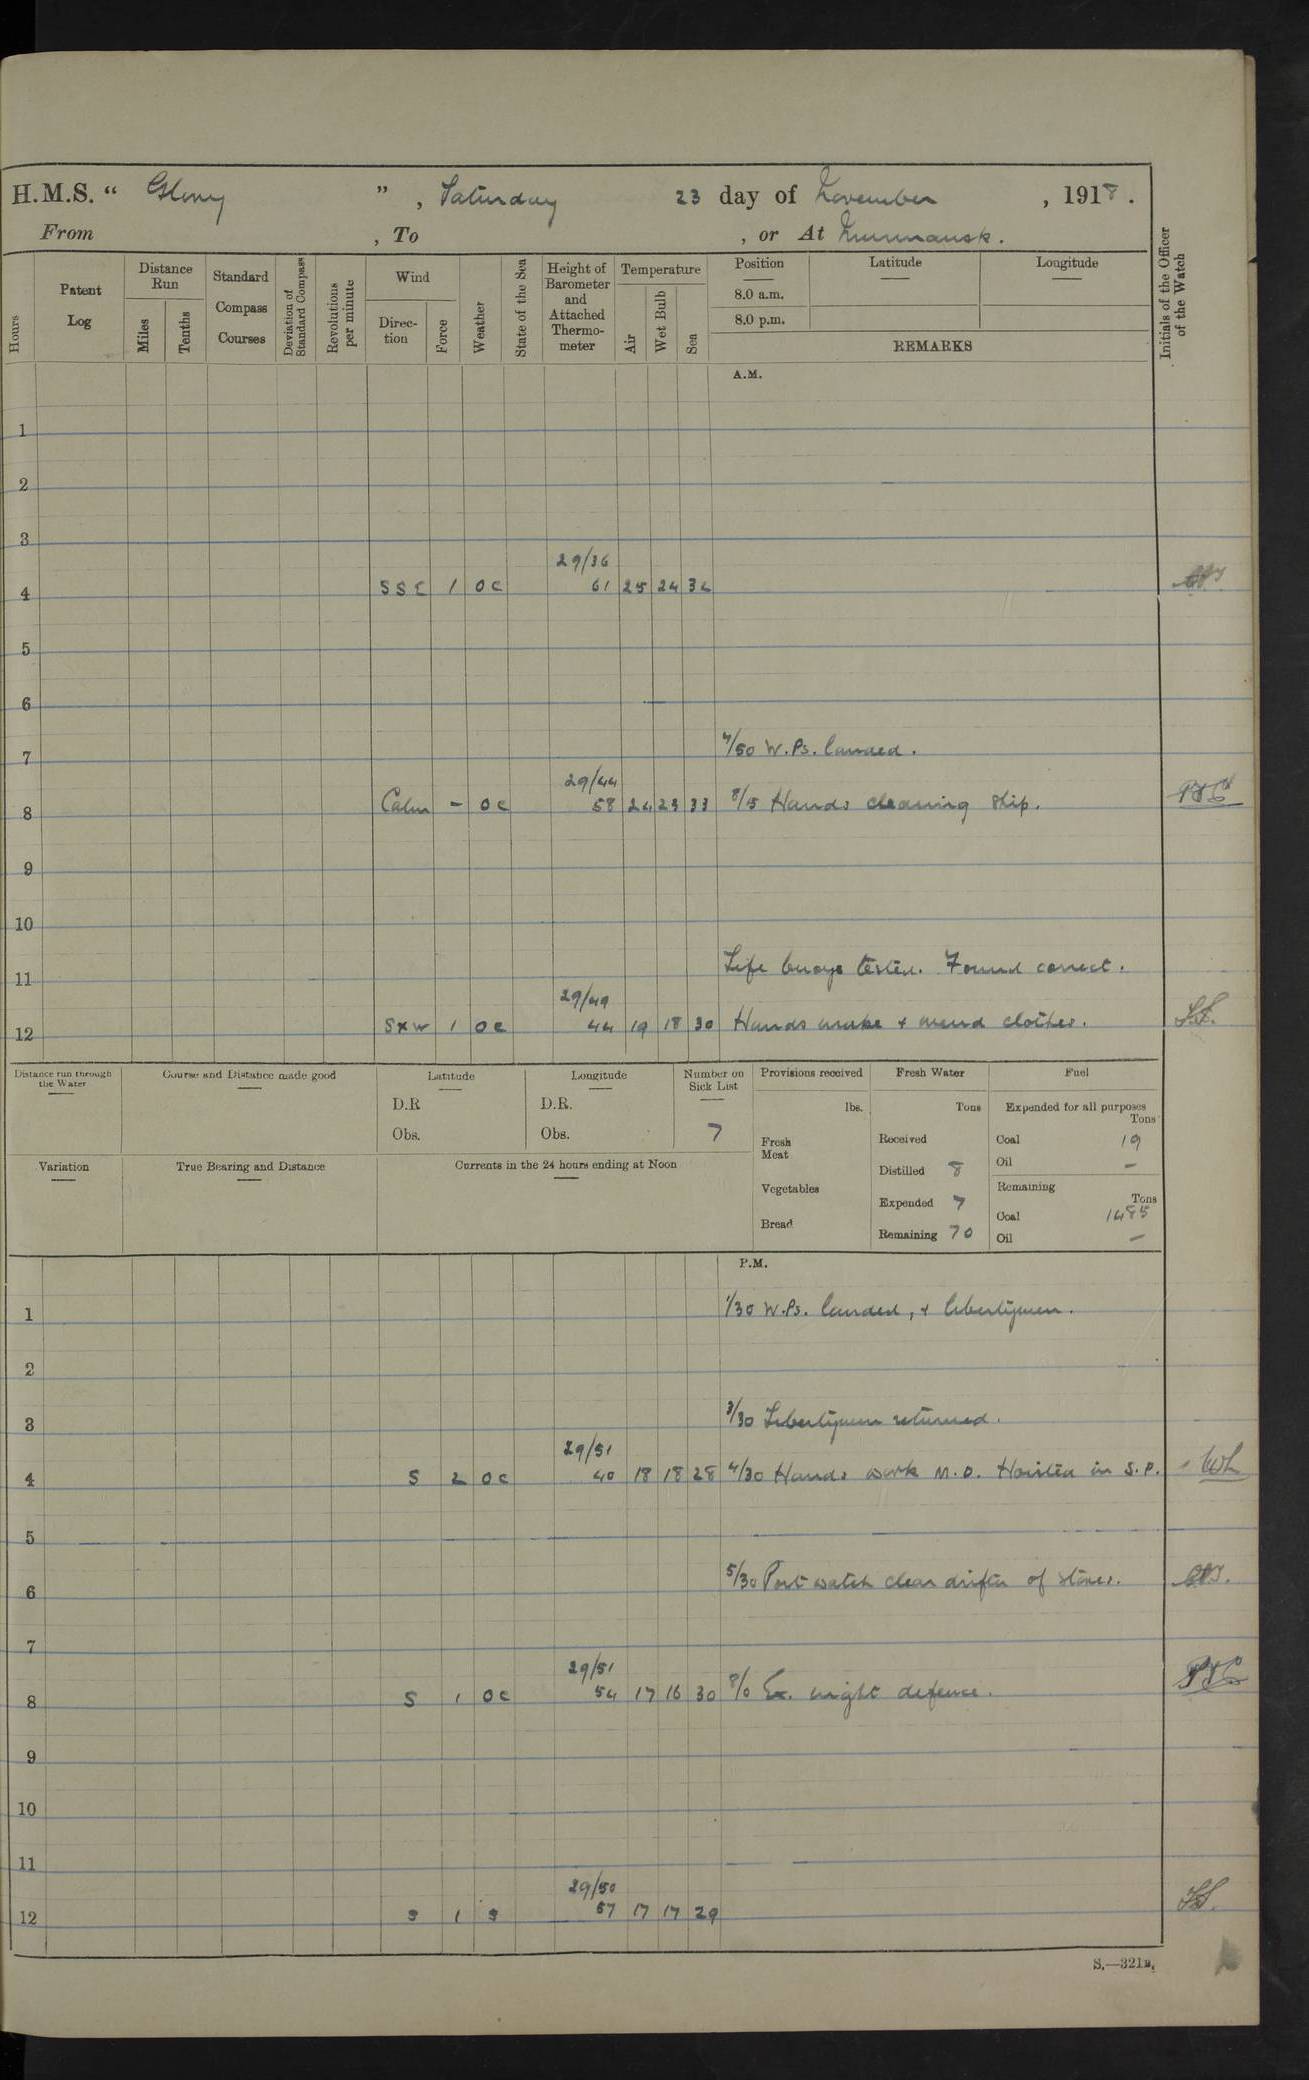 H.M.S. “ Glory ”, Saturday 23 day of November, 1918.
From , To , or At Murmansk.
Hours
Patent Log
Distance Run
Miles
Tenths
Standard Compass Courses
Deviation of Standard Compass
Revolutions per minute
Wind
Direction
Force
Weather
State of the Sea
Height of Barometer and Attached Thermometer
Temperature
Air
Wet Bulb
Sea
Position
8.0 a.m.
8.0 p.m.
Latitude
Longitude
REMARKS
Initials of the Officer of the Watch
A.M.
1
2
3
29/36
4 SSE 1 OC 61 25 24 32
5
6
7/50 W.Ps. landed.
7
29/44
8 Calm - OC 58 24 23 33 8/15 Hands cleaning ship.
9
10
Life buoys tested. Found correct.
11
29/49
12 SxW 1 OC 44 19 18 30 Hands make + mend clothes.
Distance run through the Water
Course and Distance made good
Latitude
D.R
Obs.
Longitude
D.R.
Obs.
Number on Sick List
7
Provisions received
lbs.
Fresh Meat
Vegetables
Bread
Fresh Water
Tons
Received
Distilled 8
Expended 7
Remaining 70
Fuel
Expended for all purposes
Tons
Coal 19
Oil —
Remaining
Tons
Coal 1485
Oil —
Variation
True Bearing and Distance
Currents in the 24 hours ending at Noon
P.M.
1/30 W.Ps. landed, + libertymen.
1
2
3/30 Libertymen returned.
3
29/51
4 S 2 OC 40 18 18 28 4/30 Hands work M.D. Hoisted in S.P. WL
5
5/30 Port watch clear drifter of stores.
6
7
29/51
8 S 1 OC 54 17 16 30 8/0 Ex. night defence.
9
10
11
29/50
12 S 1 S 57 17 17 29
S.—321B.